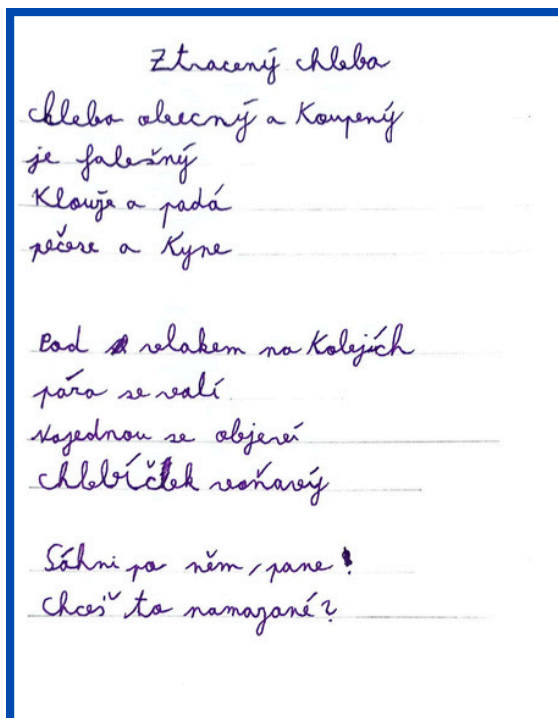 Ztracený chleba
chleba obecný a Koupený
je falešný
Klouže a padá
pečere a Kyne
Pod vlakem na Kolejích
pára se valí
Najednou se objeví
chlebíček voňavý
Sáhni po něm, pane!
Chceš to namazané?